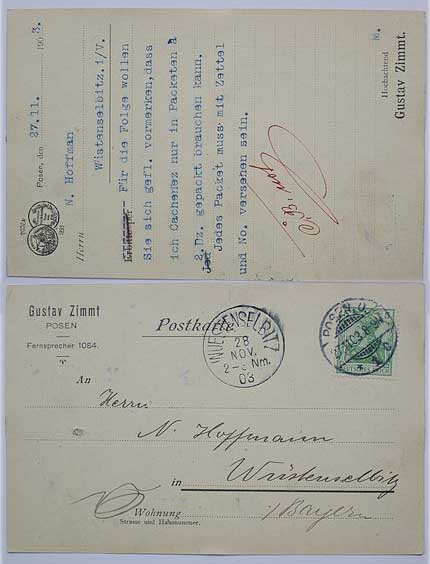 Posen, den 27.11. 1903.
Herrn N. Hoffman
Wüstenselbitz.i/V.
Für die Folge wollen
Sie sich gefl. vormerken,dass
ich Cachenez nur in Packeten à
2.Dz. gepackt brauchen kann.
Jed Jedes Packet muss mit Zettel
und No. versehen sein.
Hochachtend
Gustav Zimmt.
Gustav Zimmt
POSEN
Fernsprecher 1084.
Postkarte
WUESTENSELBITZ
28
NOV.
2-3 Nm.
03
POSEN
DEUTSCHES REICH
An
Herrn
N. Hoffmann
in Wüstenselbitz
i/Bayern
Wohnung
Strasse und Hausnummer.